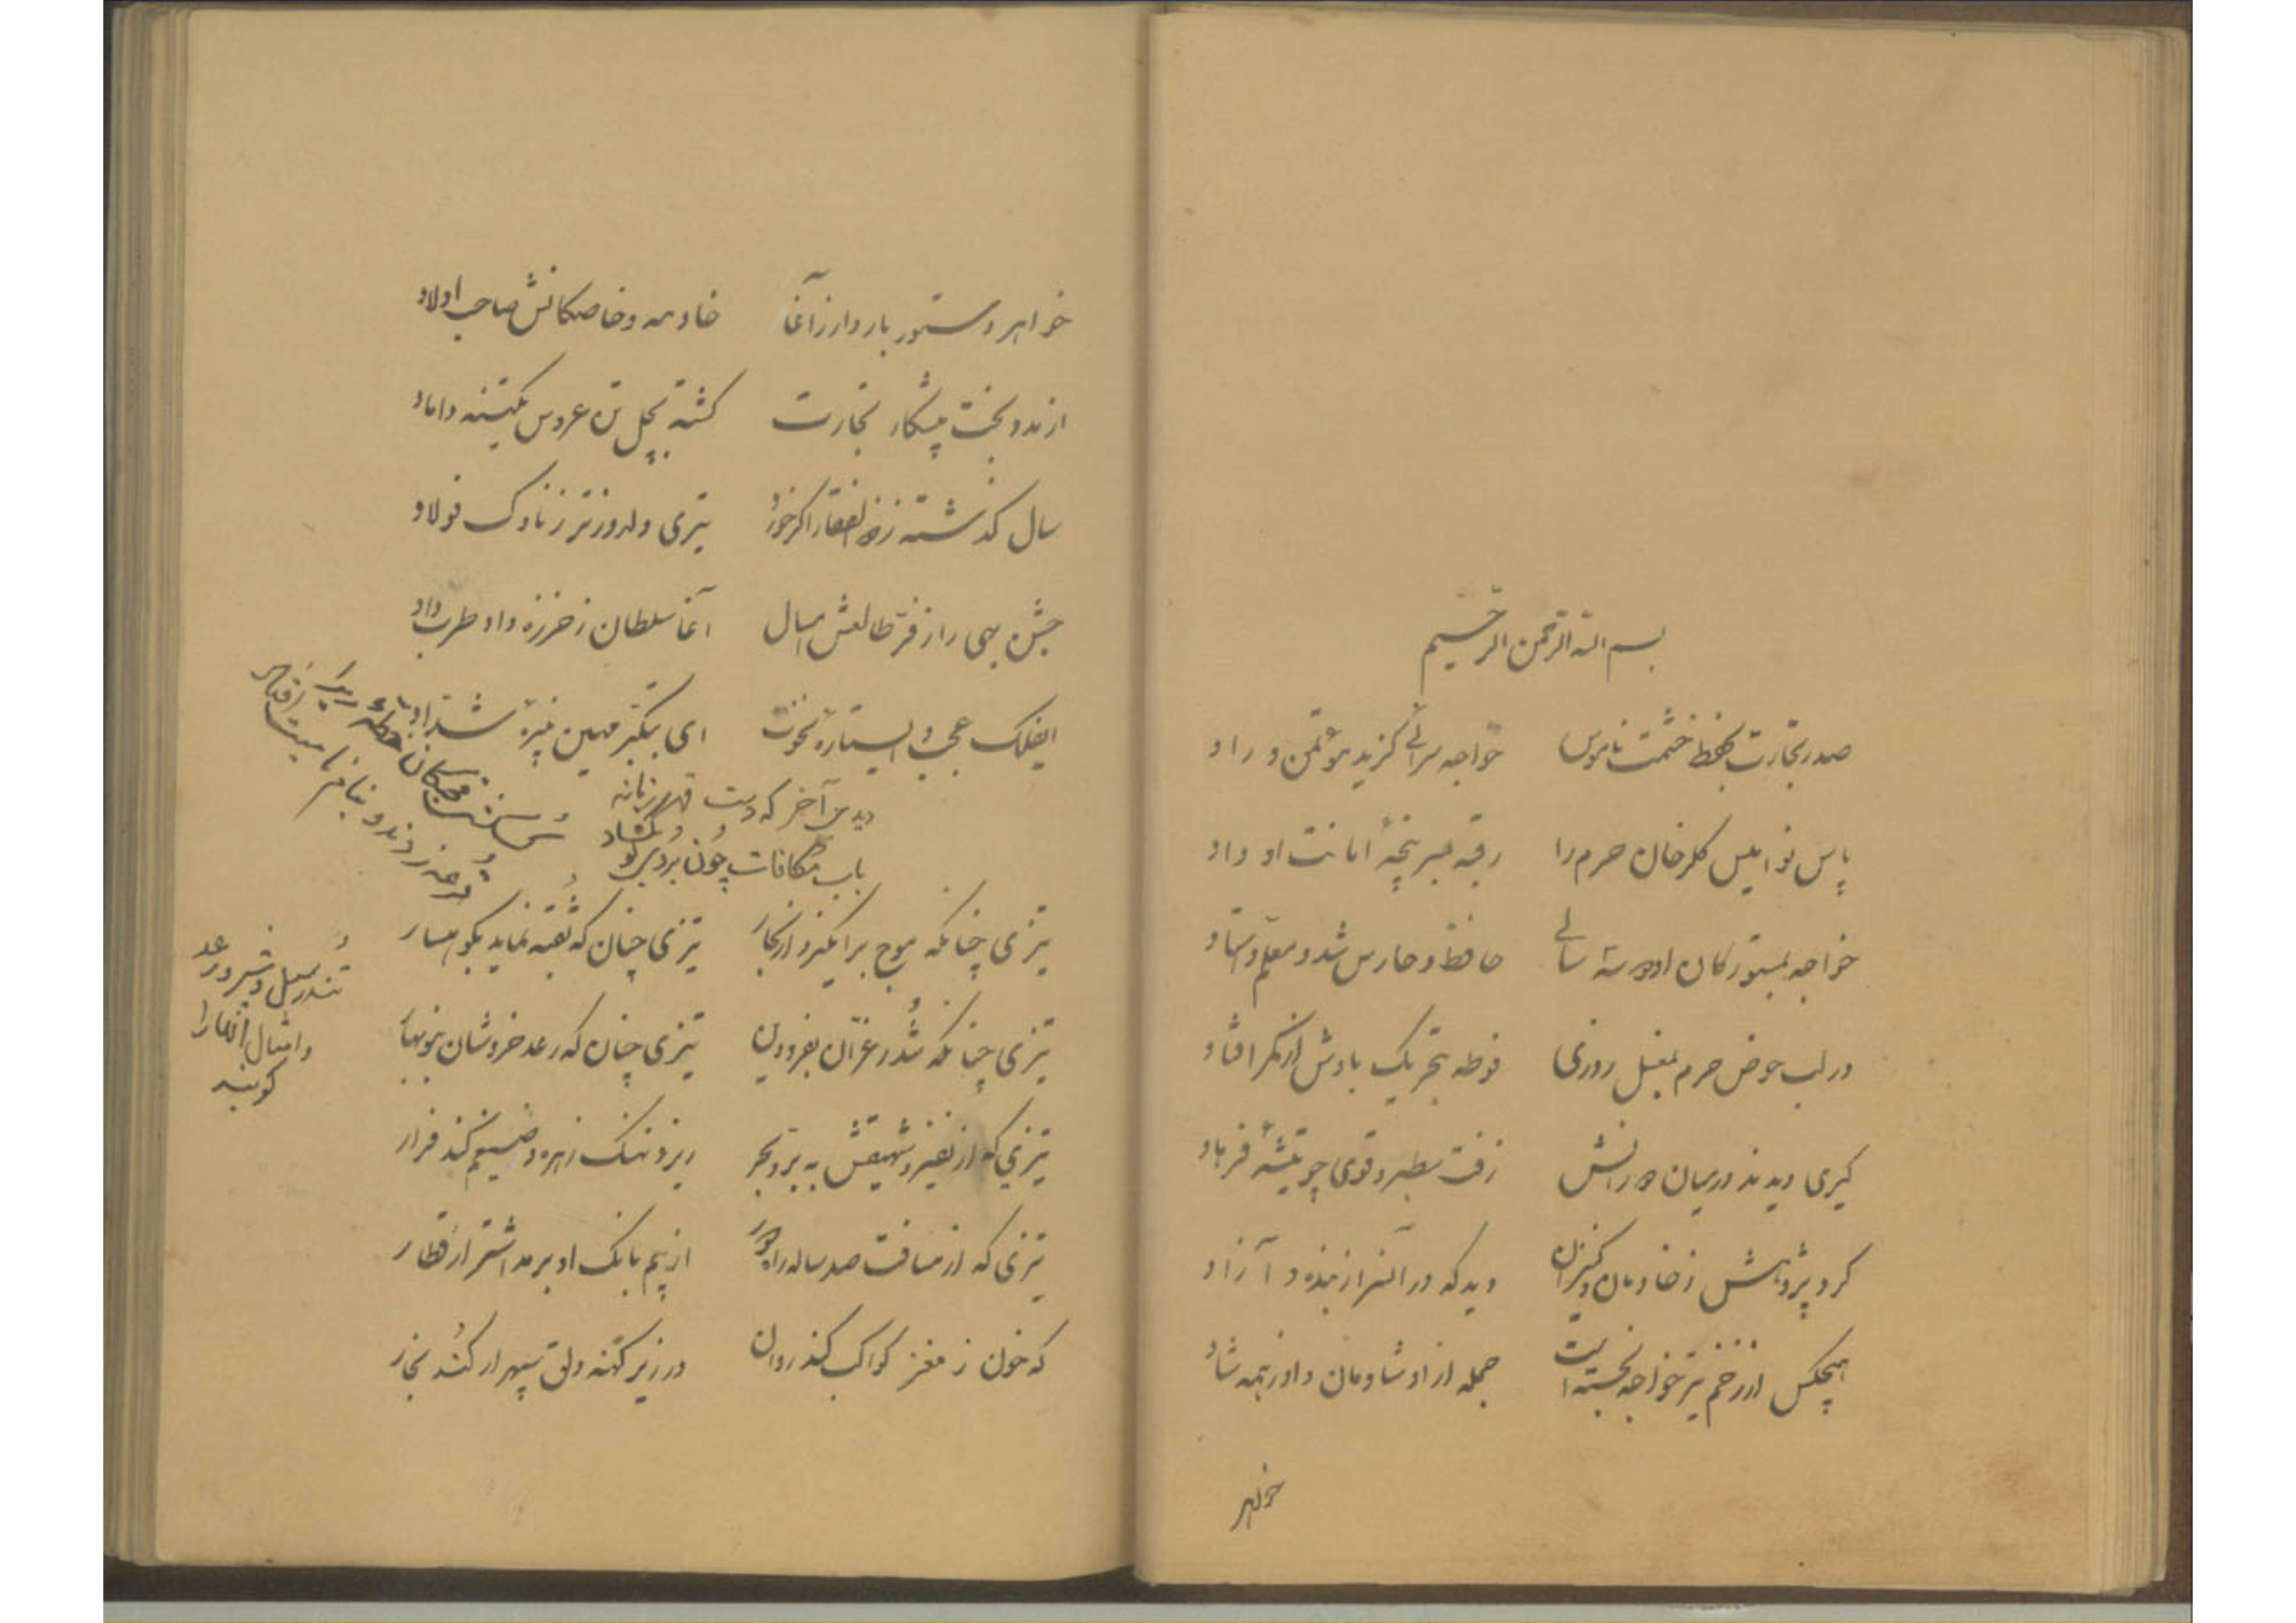 بسم الله الرحمن الرحیم
صدر تجارت بحفظ حشمت ناموس خواجه سرائی گزید مؤتمن و راد
پاس نوامیس گلرخان حرم را رقبه بسر پنجهٔ امانت او داد
خواجه بمستورکان او دو سه سالی حافظ و حارس شد و معلم و استاد
در لب حوض حرم بغسل روزی فوطه بتحریک بادش از کمر افتاد
کیری دیدند در میان دو رانش زفت و سطبر و قوی چو تیشهٔ فرهاد
کرد پژوهش ز خادمان و کنیزان دید که در آنسرا ز بنده و آزاد
هیچکس از زخم تیر خواجه نجسته است جمله از او شادمان و او ز همه شاد
خواهر
خواهر دستور باردار ز آغا خادمه و خاصگانش صاحب اولاد
از مدد بخت پیشکار تجارت کشته بچهل تن عروس یکتنه داماد
سال گذشته ز ذوالفقار اگر خورد تیری دلدوزتر ز ناوک فولاد
جشن بهی را ز فر طالعش امسال آغا سلطان ز خرزه داد طرب داد
ایفلک عجب و ایستارهٔ نخوت ای بتکبر مهین نتیجهٔ شداد
دیدی آخر که دست قهر زمانه
باب مکافات چون بروی تو بگشاد
تیزی چنانکه موج برانگیزد از بحار تیزی چنان که ثقبه نماید بکوهسار
تیزی چنانکه تندر غران بفرودین تیزی چنان که رعد خروشان بنوبهار
تیزی که از نفیر و شهیقش به بر و بحر ریزد نهنگ زهره و ضیغم کند فرار
تیزی که از مسافت صد ساله راه دور از بیم بانک او برمد اشتر از قطار
که خون ز مغز کواکب کند روان در زیر کهنه دلق سپهر ار کند بخار
تندر سیل و شیر و رعد
و امثال آنها را
گویند